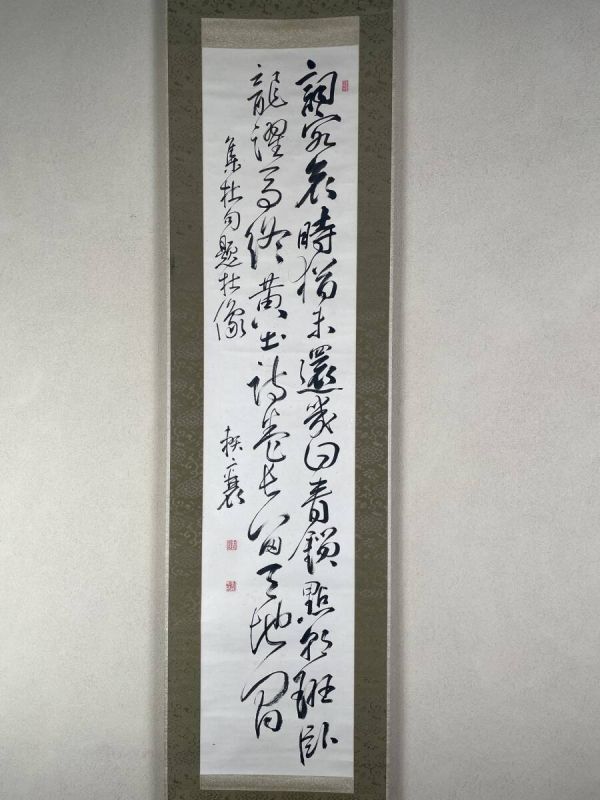 詞客哀時猶未還幾回青鎖點朝班臥
龍躍馬終黄土詩卷長留天地間
集杜句題杜像
賴襄